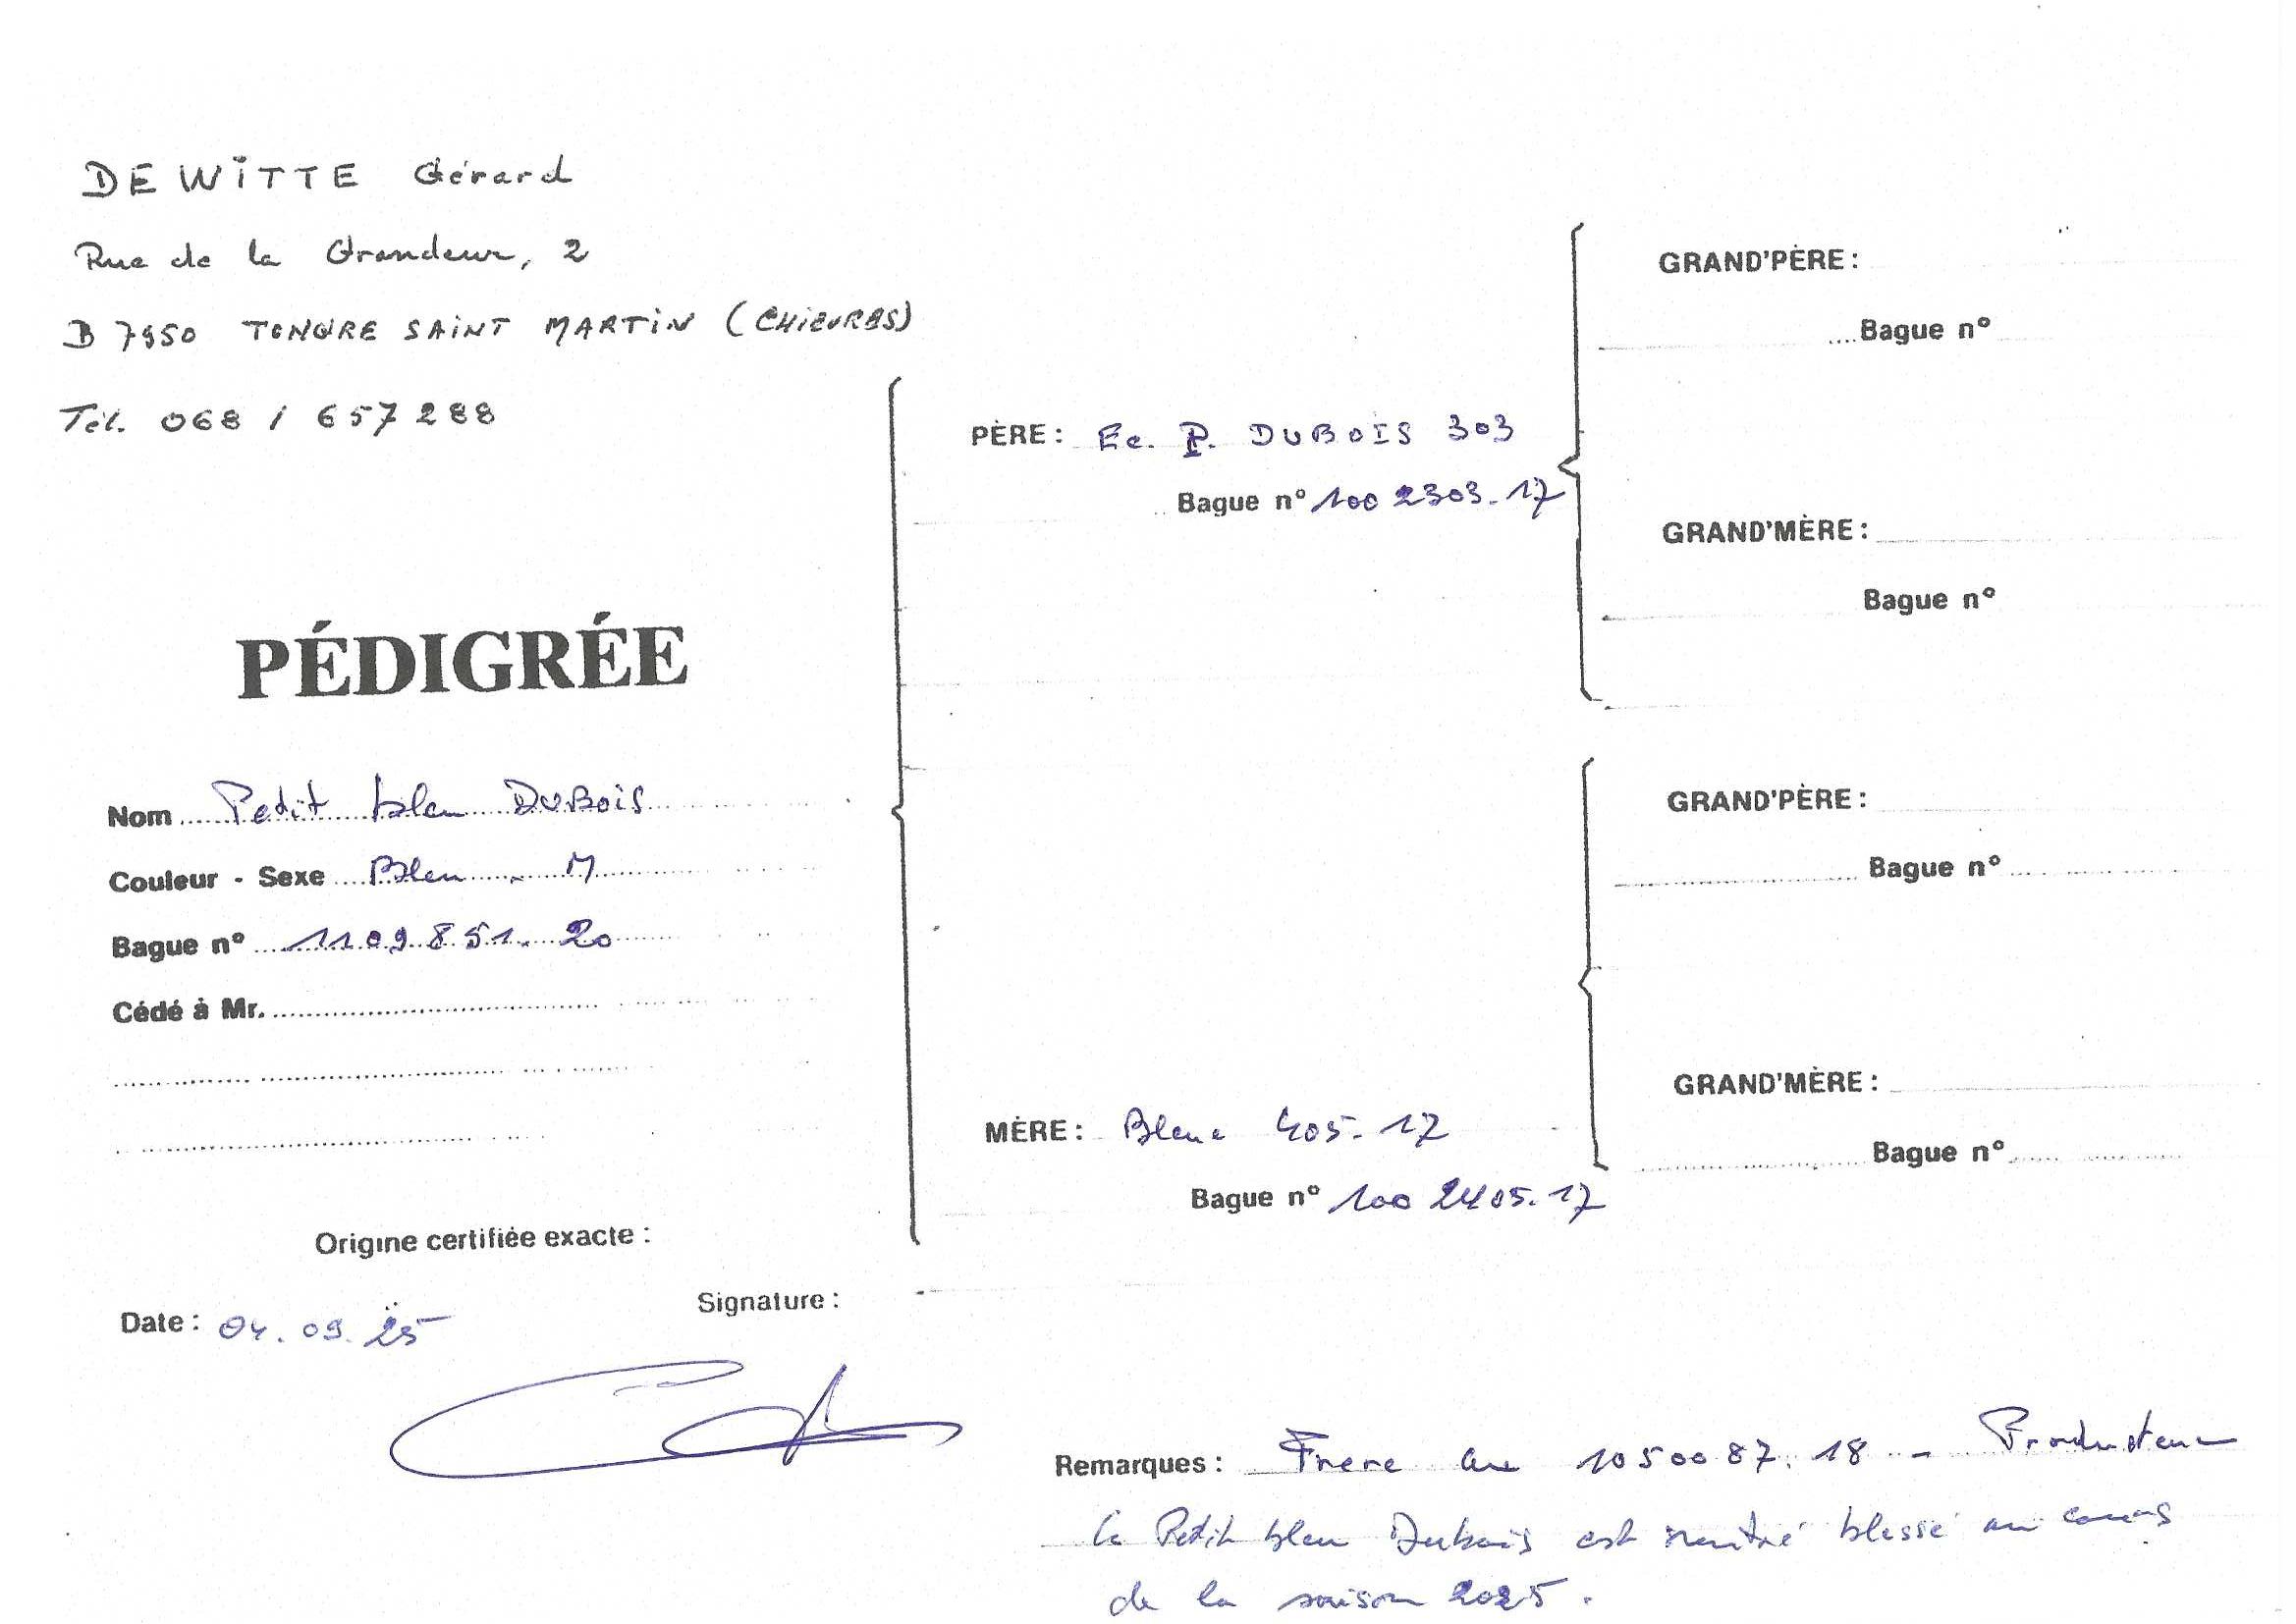 DEWITTE Gérard
Rue de la Grandeur, 2
B 7950 TONGRE SAINT MARTIN (CHIEVRES)
Tél. 068 / 657288
PÉDIGRÉE
Nom Petit bleu DUBOIS
Couleur - Sexe Bleu - M
Bague n° 1109851. 20
Cédé à Mr.
Origine certifiée exacte :
Date : 04. 09. 25
Signature :
PÈRE : Ec. P. DUBOIS 303
Bague n° 100 2303. 17
MÈRE : Bleue 405. 17
Bague n° 100 2405. 17
GRAND'PÈRE :
Bague n°
GRAND'MÈRE :
Bague n°
GRAND'PÈRE :
Bague n°
GRAND'MÈRE :
Bague n°
Remarques : Frère au 1050087. 18 - Producteur
le Petit bleu Dubois est rentré blessé au cours
de la saison 2025.